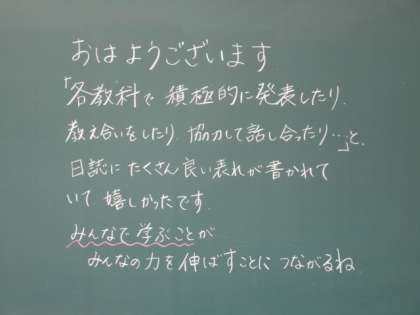 おはようございます
「各教科で積極的に発表したり、
教え合いをしたり、協力して話し合ったり…」と、
日誌にたくさん良い表れが書かれて
いて嬉しかったです。
みんなで学ぶことが
みんなの力を伸ばすことにつながるね